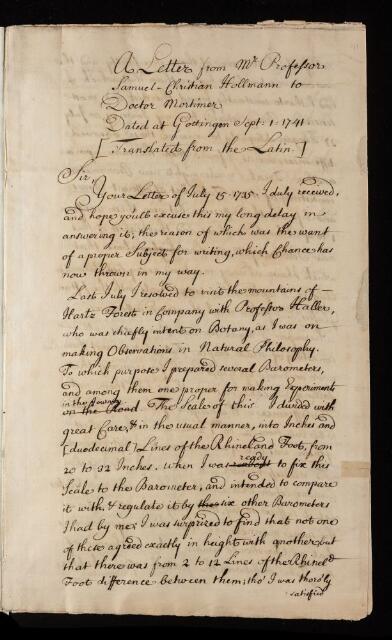 A Letter from Mr. Professor
Samuel-Christian Hollmann to
Doctor Mortimer
Dated at Gottingen Sept: 1. 1741
[Translated from the Latin.]
Sir,
Your Letter of July 15 1735 I duly received,
and hope you'l excuse this my long delay in
answering it, the reason of which was the want
of a proper Subject for writing, which Chance has
now thrown in my way.
Last July I resolved to visit the mountains of
Hartz Forest in Company with Professor Haller,
who was chiefly intent on Botany, as I was on
making Observations in Natural Philosophy.
To which purpose I prepared several Barometers,
and among them one proper for making Experiments
in the
on the Road The Scale of this I divided with
great Care, & in the usual manner, into Inches and
[duodecimal] Lines of the Rhineland Foot, from
20 to 32 Inches. When I was ready to fix this
Scale to the Barometer, and intended to compare
it with & regulate it by six other Barometers
I had by me; I was surprized to find that not one
of these agreed exactly in height with another, but
that there was from 2 to 12 Lines of the Rhinel.d
Foot difference between them; tho' I was thoro'ly
satisfied